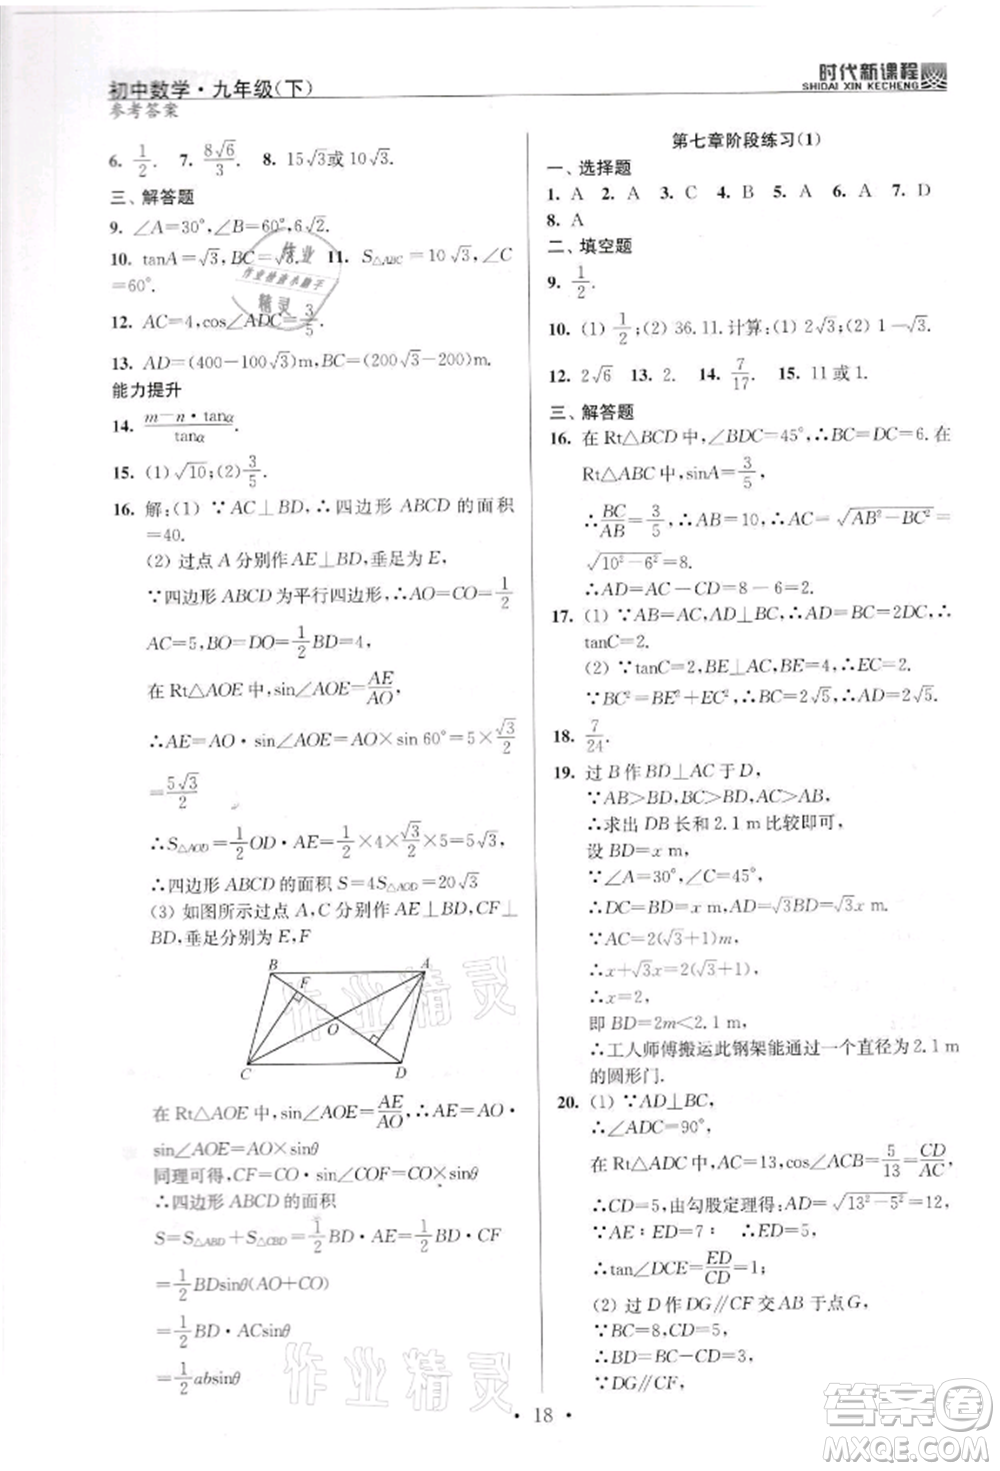 初中数学·九年级(下)
参考答案
时代新课程
SHIDAI XIN KECHENG
6. 1/2. 7. 8√6/3. 8. 15√3或10√3.
三、解答题
9. ∠A=30°,∠B=60°,6√2.
10. tanA=√3,BC=√6. 11. S△ABC=10√3,∠C
=60°.
12. AC=4,cos∠ADC=3/5.
13. AD=(400-100√3)m,BC=(200√3-200)m.
能力提升
14. (m-n·tanα)/tanα.
15. (1)√10;(2)3/5.
16. 解:(1) ∵AC⊥BD,∴四边形 ABCD 的面积
=40.
(2) 过点 A 分别作 AE⊥BD,垂足为 E,
∵四边形 ABCD 为平行四边形,∴AO=CO=1/2
AC=5,BO=DO=1/2BD=4,
在 Rt△AOE 中,sin∠AOE=AE/AO,
∴AE=AO·sin∠AOE=AO×sin 60°=5×√3/2
=5√3/2
∴S△AOD=1/2OD·AE=1/2×4×√3/2×5=5√3
∴四边形 ABCD 的面积 S=4S△AOD=20√3
(3) 如图所示过点 A,C 分别作 AE⊥BD,CF⊥
BD,垂足分别为 E,F
B A
F
O
C D
在 Rt△AOE 中,sin∠AOE=AE/AO,∴AE=AO·
sin∠AOE=AO×sinθ
同理可得,CF=CO·sin∠COF=CO×sinθ
∴四边形 ABCD 的面积
S=S△ABD+S△CBD=1/2BD·AE+1/2BD·CF
=1/2BDsinθ(AO+CO)
=1/2BD·ACsinθ
=1/2absinθ
第七章阶段练习(1)
一、选择题
1. A 2. A 3. C 4. B 5. A 6. A 7. D
8. A
二、填空题
9. 1/2.
10. (1) 1/2;(2) 36.11.计算:(1) 2√3;(2) 1-√3.
12. 2√6 13. 2. 14. 7/17. 15. 11 或 1.
三、解答题
16. 在 Rt△BCD 中,∠BDC=45°,∴BC=DC=6.在
Rt△ABC 中,sinA=3/5,
∴BC/AB=3/5,∴AB=10,∴AC=√(AB²-BC²)=
√(10²-6²)=8.
∴AD=AC-CD=8-6=2.
17. (1) ∵AB=AC,AD⊥BC,∴AD=BC=2DC,∴
tanC=2.
(2) ∵tanC=2,BE⊥AC,BE=4,∴EC=2.
∵BC²=BE²+EC²,∴BC=2√5,∴AD=2√5.
18. 7/24.
19. 过 B 作 BD⊥AC 于 D,
∵AB>BD,BC>BD,AC>AB,
∴求出 DB 长和 2.1 m 比较即可,
设 BD=x m,
∵∠A=30°,∠C=45°,
∴DC=BD=x m,AD=√3BD=√3x m.
∵AC=2(√3+1)m,
∴x+√3x=2(√3+1),
∴x=2,
即 BD=2m<2.1 m,
∴工人师傅搬运此钢架能通过一个直径为 2.1 m
的圆形门.
20. (1) ∵AD⊥BC,
∴∠ADC=90°,
在 Rt△ADC 中,AC=13,cos∠ACB=5/13=CD/AC,
∴CD=5,由勾股定理得:AD=√(13²-5²)=12,
∵AE∶ED=7∶5,∴ED=5,
∴tan∠DCE=ED/CD=1;
(2) 过 D 作 DG∥CF 交 AB 于点 G,
∵BC=8,CD=5,
∴BD=BC-CD=3,
∵DG∥CF,
·18·
作业精灵
作业精灵
答案圈
MXQE.COM